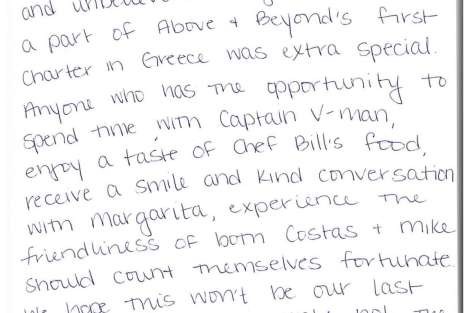 and
a part of Above + Beyond's first
charter in Greece was extra special.
Anyone who has the opportunity to
spend time with Captain V-man,
enjoy a taste of Chef Bill's food,
receive a smile and kind conversation
with Margarita, experience the
friendliness of both Costas + Mike
should count themselves fortunate.
We hope this won't be our last